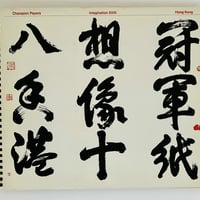 Champion Papers
Imagination XVIII
Hong Kong
冠軍紙
想像十
八香港